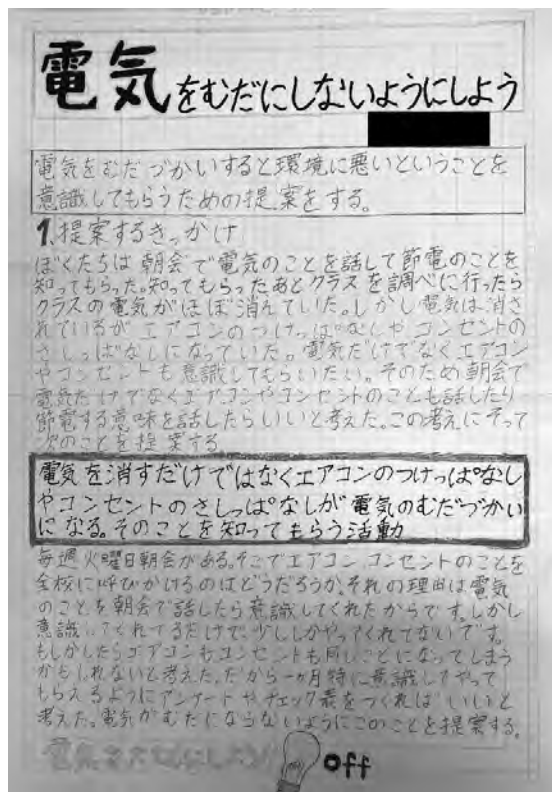 電気をむだにしないようにしよう
電気をむだづかいすると環境に悪いということを
意識してもらうための提案をする。
1.提案するきっかけ
ぼくたちは朝会で電気のことを話して節電のことを
知ってもらった。知ってもらったあとクラスを調べに行ったら
クラスの電気がほぼ消えていた。しかし電気は消さ
れているがエアコンのつけっぱなしやコンセントの
さしっぱなしになっていた。電気だけでなくエアコン
やコンセントも意識してもらいたい。そのため朝会で
電気だけでなくエアコンやコンセントのことも話したり
節電する意味を話したらいいと考えた。この考えにそって
次のことを提案する
電気を消すだけではなくエアコンのつけっぱなし
やコンセントのさしっぱなしが電気のむだづかい
になる。そのことを知ってもらう活動
毎週火曜日朝会がある。そこでエアコン、コンセントのことを
全校に呼びかけるのはどうだろうか。それの理由は電気
のことを朝会で話したら意識してくれたからです。しかし
意識してくれてるだけで少ししかやってくれてないです。
もしかしたらエアコンもコンセントも同じことになってしまう
かもしれないと考えた。だから一ヵ月特に意識してやって
もらえるようにアンケートやチェック表をつくればいいと
考えた。電気がむだにならないようにこのことを提案する。
電気を大切にしよう!
off